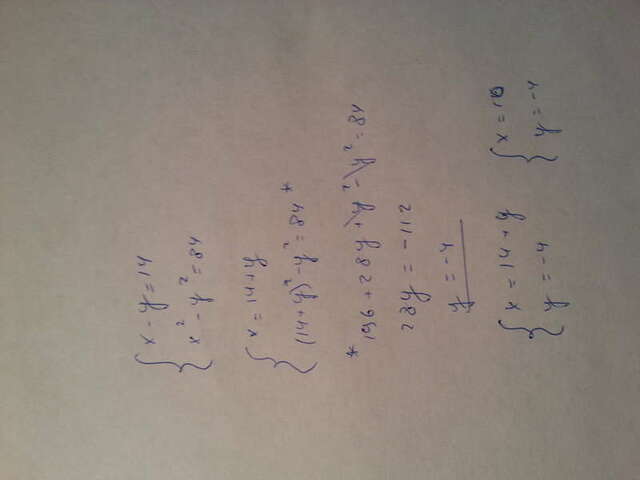 { x - y = 14
x² - y² = 84
{ x = 14 + y
(14 + y)² - y² = 84 *
* 196 + 28y + y² - y² = 84
28y = -112
y = -4
{ x = 14 + y
y = -4
{ x = 10
y = -4